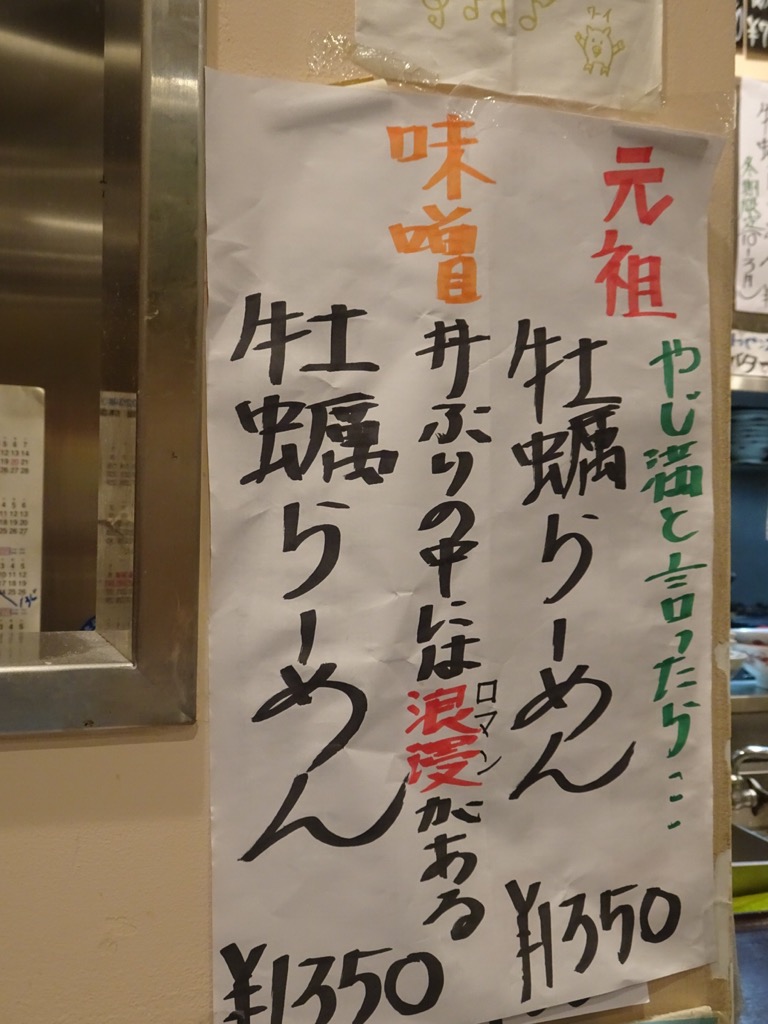 ワーイ
元祖
やじ満と言ったら…
牡蠣らーめん
¥1350
味噌
丼ぶりの中には浪漫がある
ロマン
牡蠣らーめん
¥1350